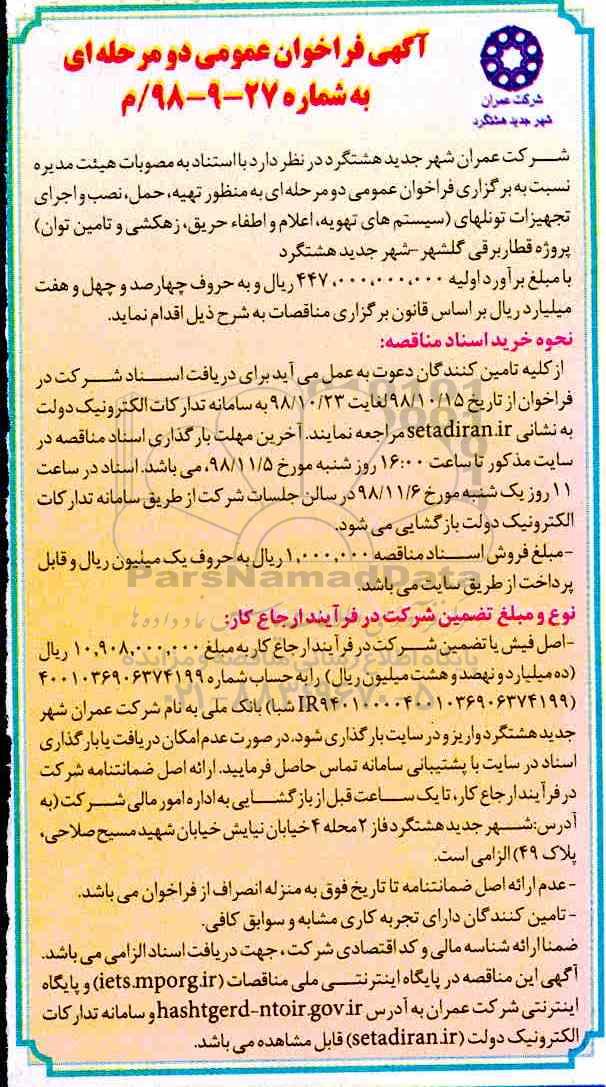 آگهی فراخوان عمومی دو مرحله ای
به شماره ۲۷-۹-۹۸/م
شرکت عمران
شهر جدید هشتگرد
شرکت عمران شهر جدید هشتگرد در نظر دارد با استناد به مصوبات هیئت مدیره
نسبت به برگزاری فراخوان عمومی دو مرحله ای به منظور تهیه، حمل، نصب و اجرای
تجهیزات تونلهای (سیستم های تهویه، اعلام و اطفاء حریق، زهکشی و تامین توان)
پروژه قطار برقی گلشهر-شهر جدید هشتگرد
با مبلغ برآورد اولیه ۴۴۷،۰۰۰،۰۰۰،۰۰۰ ریال و به حروف چهارصد و چهل و هفت
میلیارد ریال بر اساس قانون برگزاری مناقصات به شرح ذیل اقدام نماید.
نحوه خرید اسناد مناقصه:
از کلیه تامین کنندگان دعوت به عمل می آید برای دریافت اسناد شرکت در
فراخوان از تاریخ ۹۸/۱۰/۱۵ لغایت ۹۸/۱۰/۲۳ به سامانه تدارکات الکترونیک دولت
به نشانی setadiran.ir مراجعه نمایند. آخرین مهلت بارگذاری اسناد مناقصه در
سایت مذکور تا ساعت ۱۶:۰۰ روز شنبه مورخ ۹۸/۱۱/۵، می باشد. اسناد در ساعت
۱۱ روز یک شنبه مورخ ۹۸/۱۱/۶ در سالن جلسات شرکت از طریق سامانه تدارکات
الکترونیک دولت بازگشایی می شود.
-مبلغ فروش اسناد مناقصه ۱,۰۰۰,۰۰۰ ریال به حروف یک میلیون ریال و قابل
پرداخت از طریق سایت می باشد.
ParsNamadData
نوع و مبلغ تضمین شرکت در فرآیند ارجاع کار:
-اصل فیش یا تضمین شرکت در فرآیند ارجاع کار به مبلغ ۱۰,۹۰۸,۰۰۰,۰۰۰ ریال
(ده میلیارد و نهصد و هشت میلیون ریال) را به حساب شماره ۴۰۰۱۰۳۶۹۰۶۳۷۴۱۹۹
پایگاه اطلاع رسانی مناقصه و مزایده
(IR۹۴۰۱۰۰۰۰۴۰۰۱۰۳۶۹۰۶۳۷۴۱۹۹ شبا) بانک ملی به نام شرکت عمران شهر
جدید هشتگرد واریز و در سایت بارگذاری شود. در صورت عدم امکان دریافت یا بارگذاری
اسناد در سایت با پشتیبانی سامانه تماس حاصل فرمایید. ارائه اصل ضمانتنامه شرکت
در فرآیند ارجاع کار، تا یک ساعت قبل از بازگشایی به اداره امور مالی شرکت (به
آدرس: شهر جدید هشتگرد فاز ۲ محله ۴ خیابان نیایش خیابان شهید مسیح صلاحی،
پلاک ۴۹) الزامی است.
-عدم ارائه اصل ضمانتنامه تا تاریخ فوق به منزله انصراف از فراخوان می باشد.
- تامین کنندگان دارای تجربه کاری مشابه و سوابق کافی.
ضمنا ارائه شناسه مالی و کد اقتصادی شرکت، جهت دریافت اسناد الزامی می باشد.
آگهی این مناقصه در پایگاه اینترنتی ملی مناقصات (iets.mporg.ir) و پایگاه
اینترنتی شرکت عمران به آدرس hashtgerd-ntoir.gov.ir و سامانه تدارکات
الکترونیک دولت (setadiran.ir) قابل مشاهده می باشد.